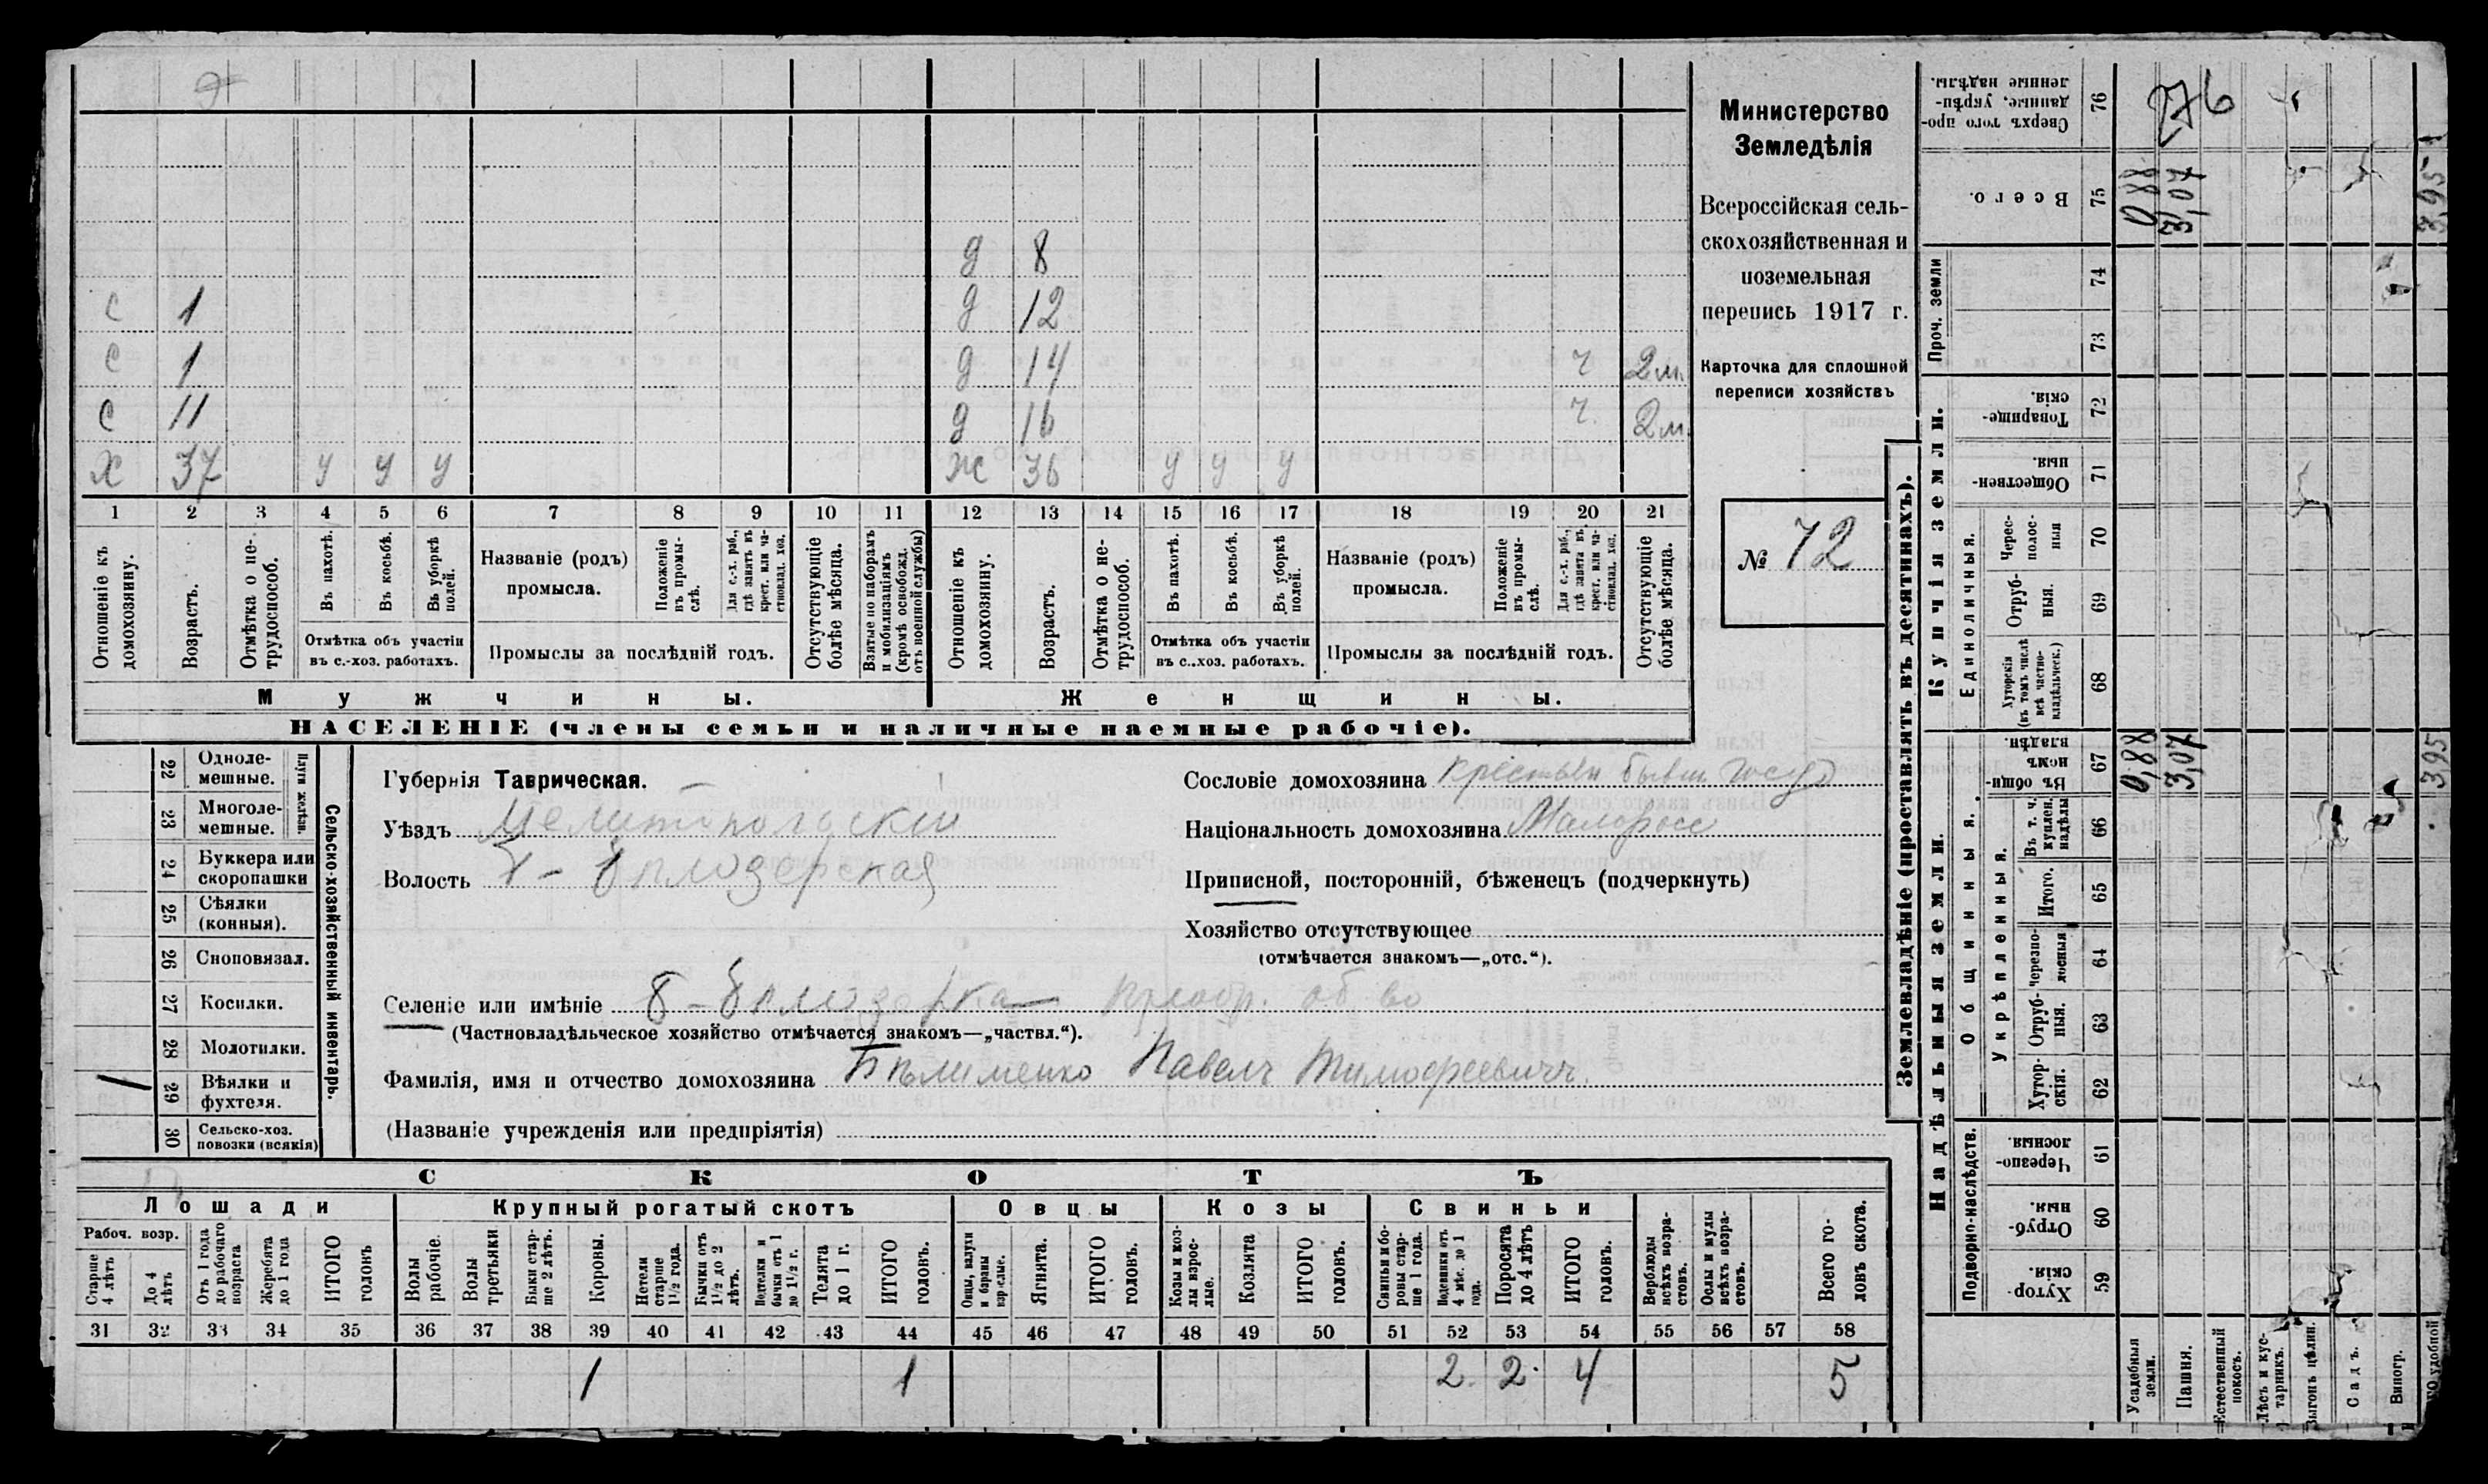 д 8
с 1 д 12
с 1 д 14 ч 2 м.
с 11 д 16 ч. 2 м.
Х 37 у у у ж 36 у у у
1 2 3 4 5 6 7 8 9 10 11 12 13 14 15 16 17 18 19 20 21
Отношеніе къ домохозяину.
Возрастъ.
Отмѣтка о нетрудоспособ.
Въ пахотѣ.
Въ косьбѣ.
Въ уборкѣ полей.
Отмѣтка объ участіи
въ с.-хоз. работахъ.
Названіе (родъ)
промысла.
Положеніе въ промыслѣ.
Для с.-х. раб., гдѣ занятъ въ крест. или частновлад. хоз.
Промыслы за послѣдній годъ.
Отсутствующіе болѣе мѣсяца.
Взятые по наборамъ и мобилизаціямъ (кромѣ освобожд. отъ военной службы)
Отношеніе къ домохозяину.
Возрастъ.
Отмѣтка о нетрудоспособ.
Въ пахотѣ.
Въ косьбѣ.
Въ уборкѣ полей.
Отмѣтка объ участіи
въ с..хоз. работахъ.
Названіе (родъ)
промысла.
Положеніе въ промыслѣ.
Для с.-х. раб., гдѣ занята въ крест. или частновлад. хоз.
Промыслы за послѣдній годъ.
Отсутствующіе болѣе мѣсяца.
Мужчины. Женщины.
НАСЕЛЕНІЕ (члены семьи и наличные наемные рабочіе).
Министерство
Земледѣлія
Всероссійская сель-
скохозяйственная и
поземельная
перепись 1917 г.
Карточка для сплошной
переписи хозяйствъ
№ 72
22 Одноле-
мешные.
23 Многоле-
мешные.
Плуги желѣзн.
24 Буккера или
скоропашки
25 Сѣялки
(конныя).
26 Сноповязал.
27 Косилки.
28 Молотилки.
1 29 Вѣялки и
фухтеля.
30 Сельско-хоз.
повозки (всякія)
Сельско-хозяйственный инвентарь.
Губернія Таврическая.
Уѣздъ Мелитопольскій
Волость
Сословіе домохозяина крестьян бывш госуд
Національность домохозяина Малоросс
Приписной, посторонній, бѣженецъ (подчеркнуть)
Хозяйство отсутствующее
(отмѣчается знакомъ—„отс.“).
Селеніе или имѣніе
(Частновладѣльческое хозяйство отмѣчается знакомъ—„частвл.“).
Фамилія, имя и отчество домохозяина Павелъ Тимофеевичъ.
(Названіе учрежденія или предпріятія)
СКОТЪ
Лошади Крупный рогатый скотъ Овцы Козы Свиньи
Рабоч. возр.
Старше 4 лѣтъ
До 4 лѣтъ
Отъ 1 года до рабочаго возраста
Жеребята до 1 года
ИТОГО головъ
Волы рабочіе.
Волы третьяки
Быки старше 2 лѣтъ.
Коровы.
Нетели старше 1½ года.
Бычки отъ 1½ до 2 лѣтъ.
Подтелки и бычки отъ 1 до 1½ г.
Телята до 1 г.
ИТОГО головъ.
Овцы, валухи и бараны взрослые.
Ягнята.
ИТОГО головъ.
Козы и козлы взрослые.
Козлята
ИТОГО головъ.
Свиньи и боровы старше 1 года.
Подсвинки отъ 4 мѣс. до 1 года.
Поросята до 4 лѣтъ
ИТОГО головъ.
Верблюды всѣхъ возрастовъ.
Ослы и мулы всѣхъ возрастовъ.
Всего головъ скота.
31 32 33 34 35 36 37 38 39 40 41 42 43 44 45 46 47 48 49 50 51 52 53 54 55 56 57 58
1 1 2 2 4 5
Землевладѣніе (проставлять въ десятинахъ).
Надѣльныя земли. Купчія земли. Проч. земли
Подворно-наслѣдств.
Общинныя.
Укрѣпленныя.
Единоличныя.
Сверхъ того проданные, укрѣпленные надѣлы. 76
Всего. 75 0,88 3,07 3,95
74
73
Товарищескія. 72
Общественныя. 71
Чересполосныя 70
Отрубныя. 69
Хуторскія (въ томъ числѣ всѣ частновладѣльческ.) 68
Въ общиномъ владѣн. 67 0,88 3,07 3,95
Въ т. ч. куплен. надѣлы 66
Итого. 65
Черезполосныя 64
Отрубныя. 63
Хуторскія. 62
Черезполосныя. 61
Отрубныя. 60
Хуторскія. 59
Усадебныя земли.
Пашня.
Естественный покосъ.
Лѣсъ и кустарникъ.
Выгонъ цѣлин.
Садъ.
Виногр.
удобной
76